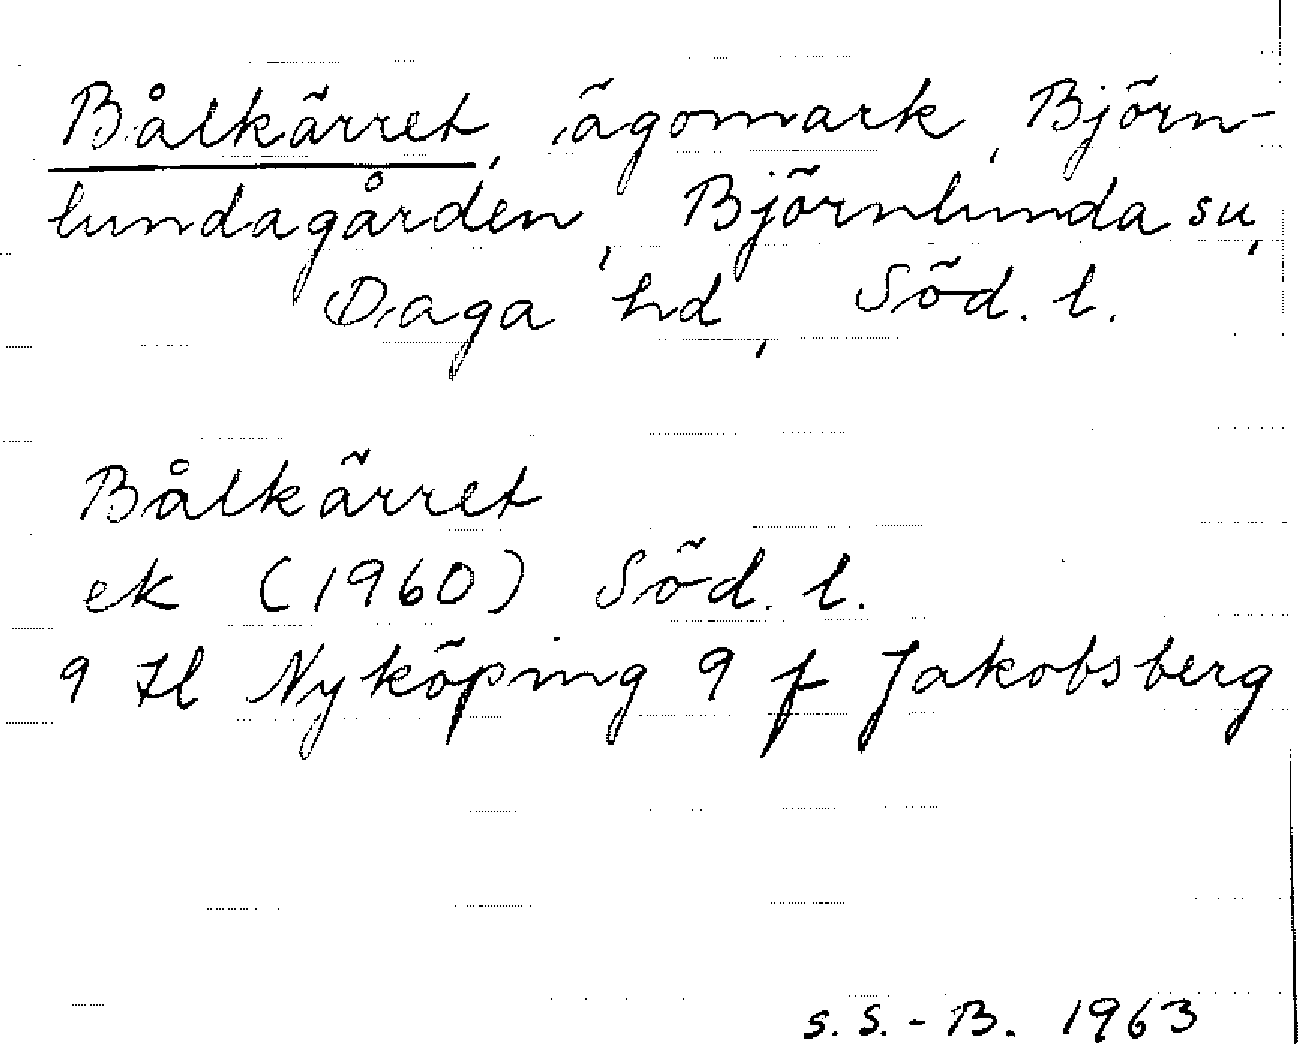 Bålkärret, ägomark, Björn-
lundagården, Björnlunda su,
Daga hd, Söd. l.
Bålkärret
ek (1960) Söd. l.
9 Hl Nyköping 9 f Jakobsberg
S.S.-B. 1963